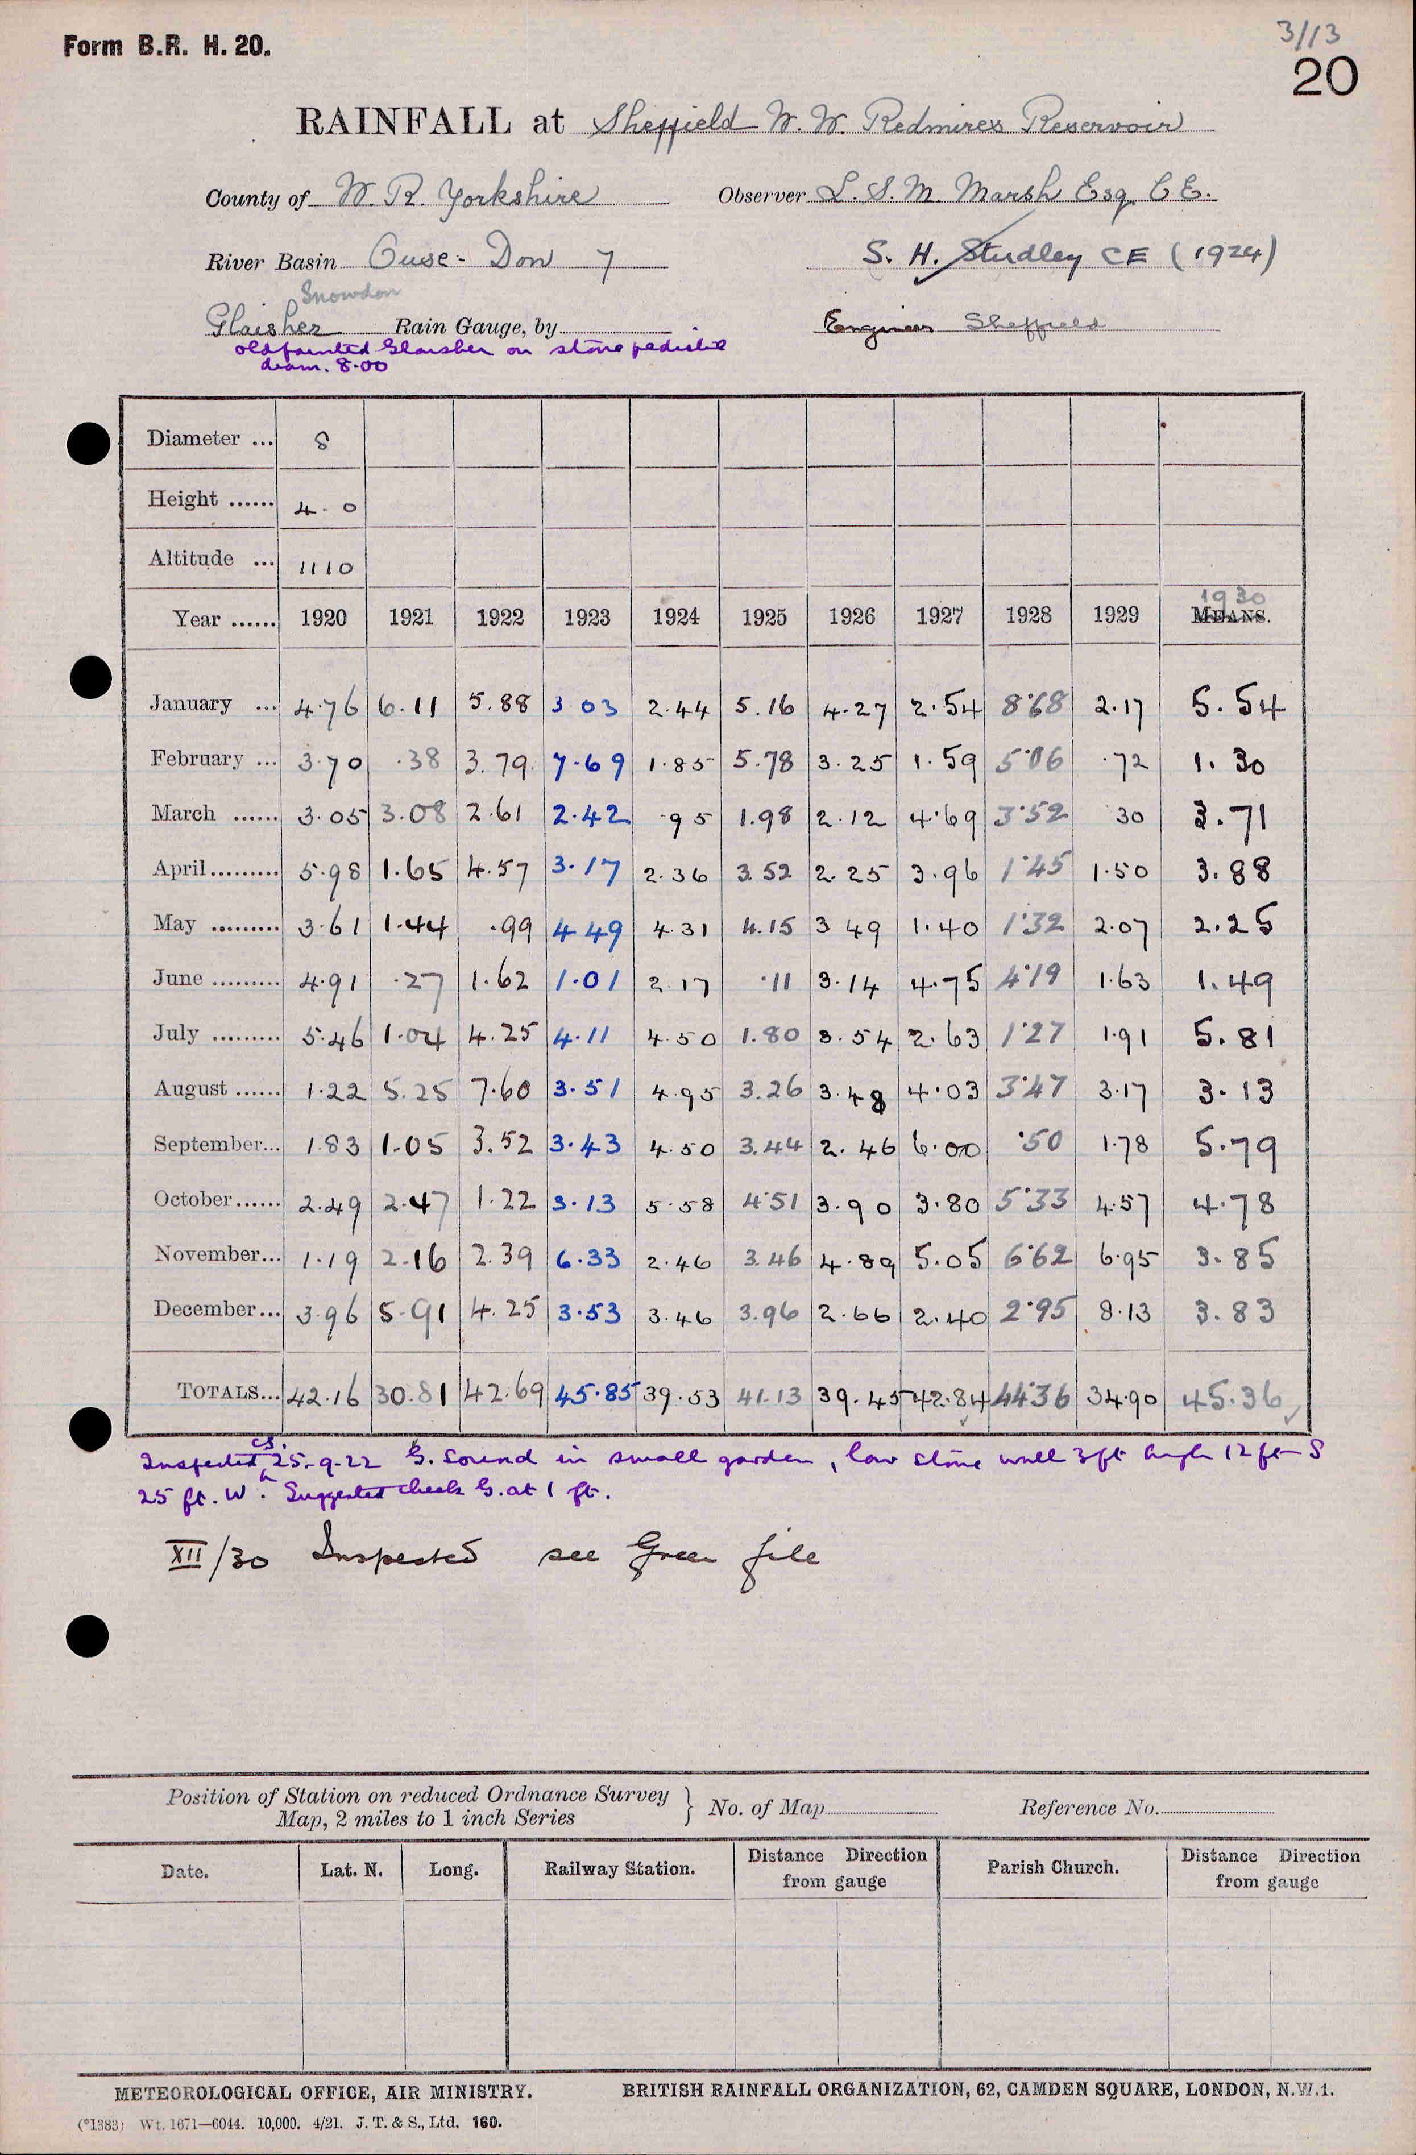 3/13
Form B.R. H. 20.
20
RAINFALL at Sheffield W. W. Redmires Reservoir
County of W. R. Yorkshire Observer L. S. M. Marsh Esq. C E.
River Basin Ouse - Don 7 S. H. Studley CE (1924)
Snowdon
Glaisher Rain Gauge, by Engineer Sheffield
old painted Glaisher on stone pedistle
diam. 8.00
Diameter ... 8
Height ...... 4 - 0
Altitude ... 1110
1930
Year ...... 1920 1921 1922 1923 1924 1925 1926 1927 1928 1929 MEANS.
January ... 4.76 6.11 5.88 3 03 2.44 5.16 4.27 2.54 8.68 2.17 5.54
February ... 3.70 .38 3.79 7.69 1.85 5.78 3.25 1.59 5.06 .72 1.30
March ...... 3.05 3.08 2.61 2.42 .95 1.98 2.12 4.69 3.52 30 3.71
April ......... 5.98 1.65 4.57 3.17 2.36 3.52 2.25 3.96 1.45 1.50 3.88
May ......... 3.61 1.44 .99 4 49 4.31 4.15 3 49 1.40 1.32 2.07 2.25
June ......... 4.91 .27 1.62 1.01 2 17 .11 3.14 4.75 4.19 1.63 1.49
July ......... 5.46 1.04 4.25 4.11 4.50 1.80 3.54 2.63 1.27 1.91 5.81
August ...... 1.22 5.25 7.60 3.51 4.95 3.26 3.48 4.03 3.47 3.17 3.13
September... 1.83 1.05 3.52 3.43 4.50 3.44 2.46 6.00 .50 1.78 5.79
October ...... 2.49 2.47 1.22 3.13 5.58 4.51 3.90 3.80 5.33 4.57 4.78
November... 1.19 2.16 2.39 6.33 2.46 3.46 4.89 5.05 6.62 6.95 3.85
December... 3.96 5.91 4.25 3.53 3.46 3.96 2.66 2.40 2.95 8.13 3.83
TOTALS... 42.16 30.81 42.69 45.85 39.53 41.13 39.45 42.84 44.36 34.90 45.36
cs.
Inspected 25-9-22 G. sound in small garden, low stone wall 3ft high 12 ft S
25 ft. W. Suggested check G. at 1 ft.
XII/30 Inspected see Green file
Position of Station on reduced Ordnance Survey
Map, 2 miles to 1 inch Series } No. of Map Reference No.
Date. Lat. N. Long. Railway Station. Distance Direction from gauge Parish Church. Distance Direction from gauge
METEOROLOGICAL OFFICE, AIR MINISTRY. BRITISH RAINFALL ORGANIZATION, 62, CAMDEN SQUARE, LONDON, N.W.1.
(*1383) Wt. 1671—6044. 10,000. 4/21. J. T. & S., Ltd. 160.